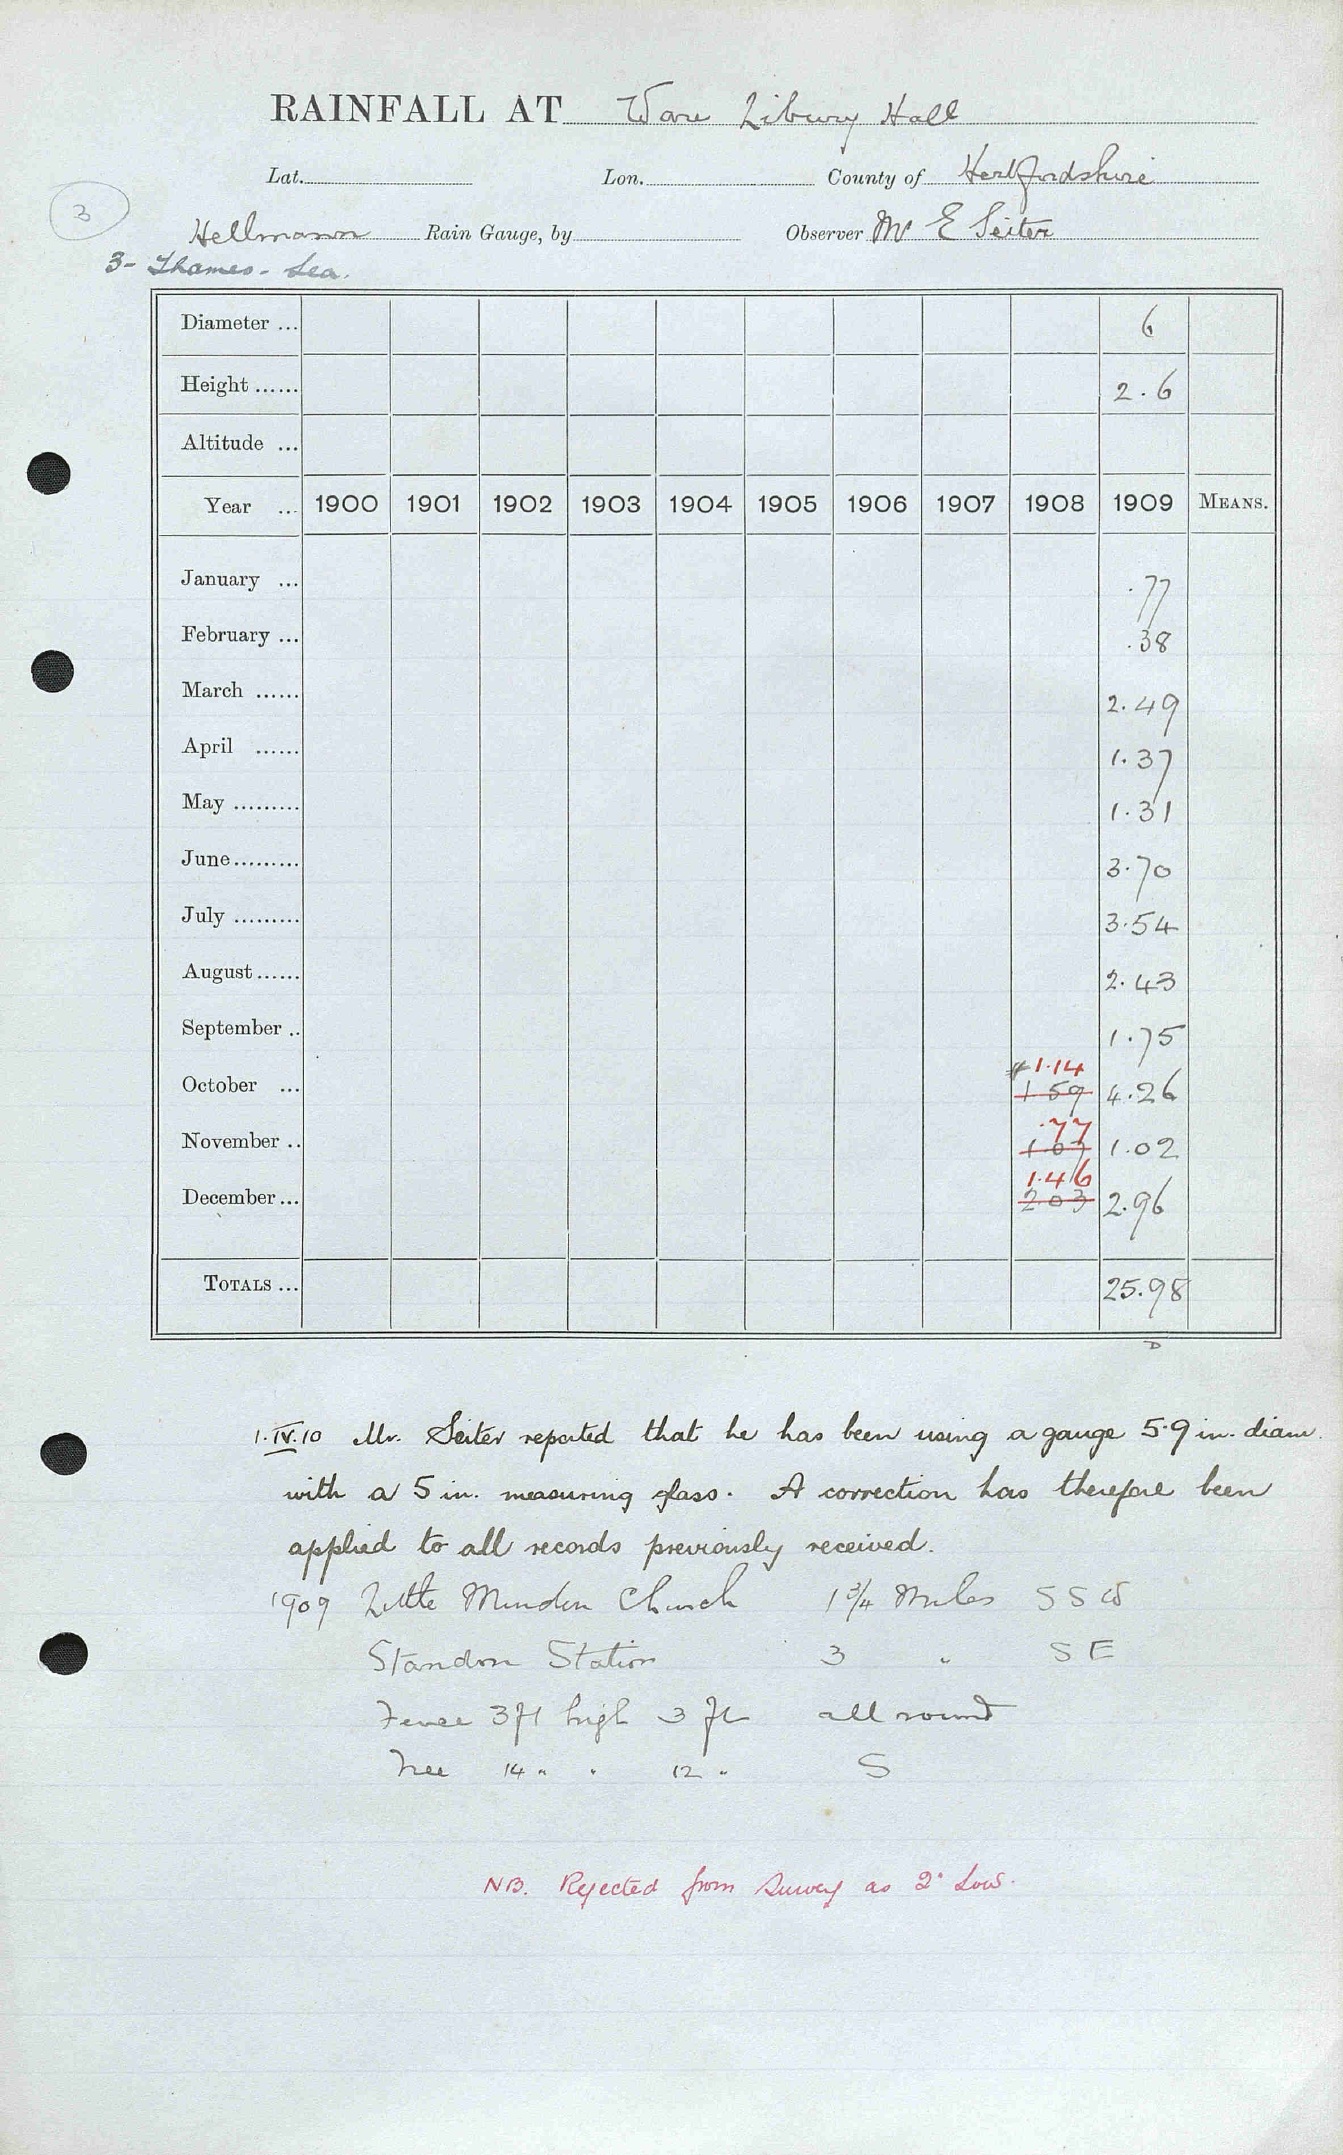 RAINFALL AT Ware Libury Hall
Lat. Lon. County of Hertfordshire
3
Hellmann Rain Gauge, by Observer Mr E Seiter
3 - Thames - Lea.
Diameter ... 6
Height ...... 2.6
Altitude ...
Year ... 1900 1901 1902 1903 1904 1905 1906 1907 1908 1909 MEANS.
January ... .77
February ... .38
March ...... 2.49
April ...... 1.37
May ......... 1.31
June......... 3.70
July ......... 3.54
August...... 2.43
September .. 1.75
1.14
October ... 1 59 4.26
.77
November .. 1 07 1.02
1.46
December... 2 03 2.96
TOTALS ... 25.98
D
1.IV.10 Mr. Seiter reported that he has been using a gauge 5.9 in. diam.
with a 5 in. measuring glass. A correction has therefore been
applied to all records previously received.
1909 Little Munden Church 1 3/4 Miles SSW
Standon Station 3 " SE
Fence 3 ft high 3 ft all round
Tree 14 " " 12 " S
NB. Rejected from Survey as 2" Low.